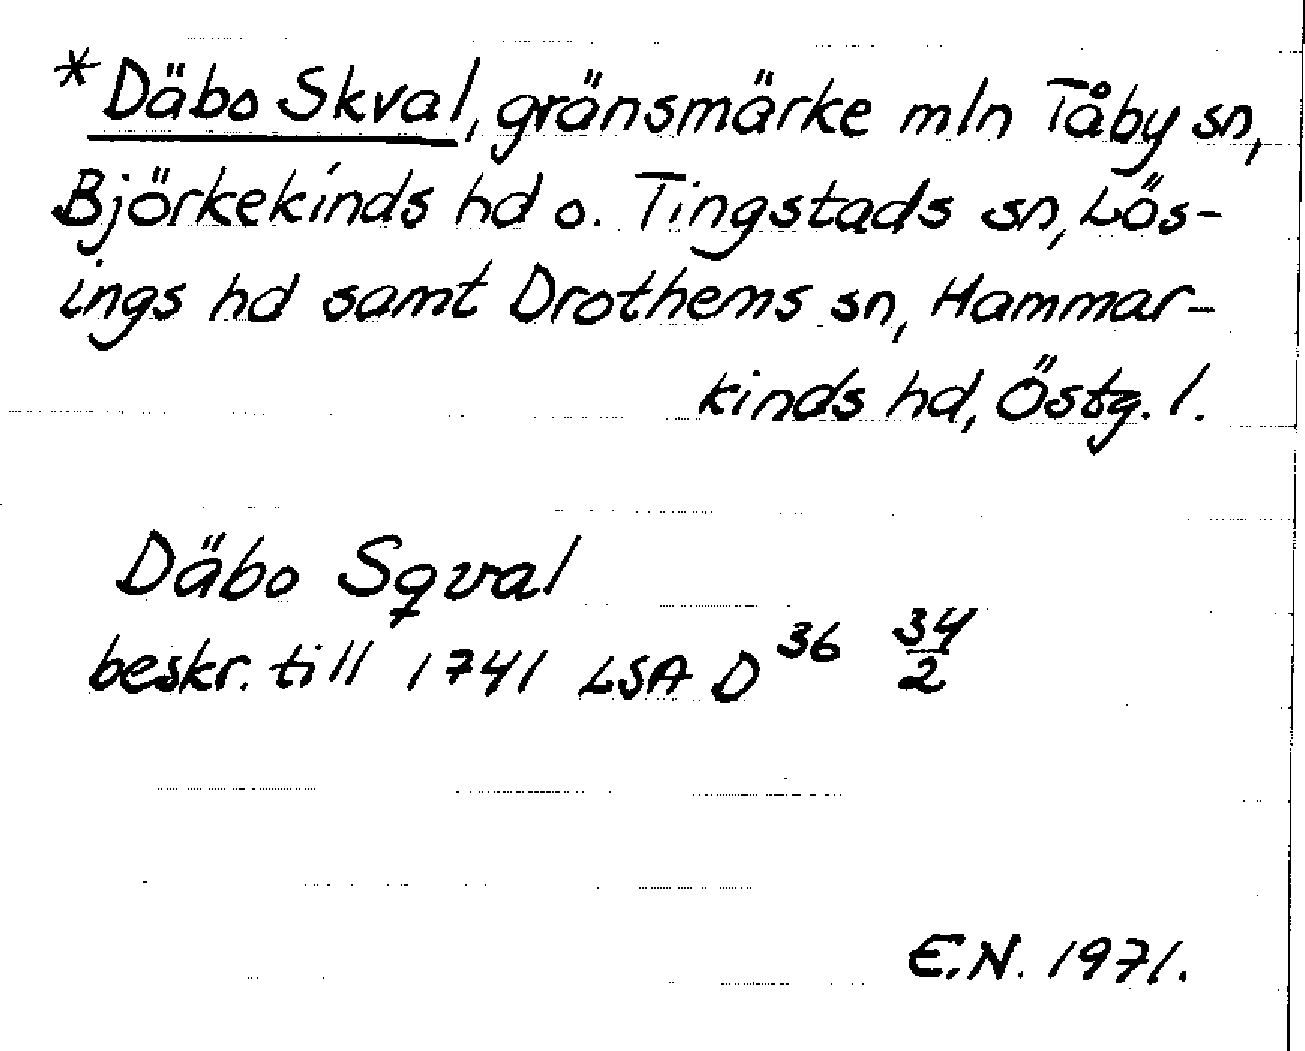 *Däbo Skval, gränsmärke mln Tåby sn,
Björkekinds hd o. Tingstads sn, Lös-
ings hd samt Drothems sn, Hammar-
kinds hd, Östg. l.
Däbo Sqval
beskr. till 1741 LSA D 36 34/2
E.N. 1971.